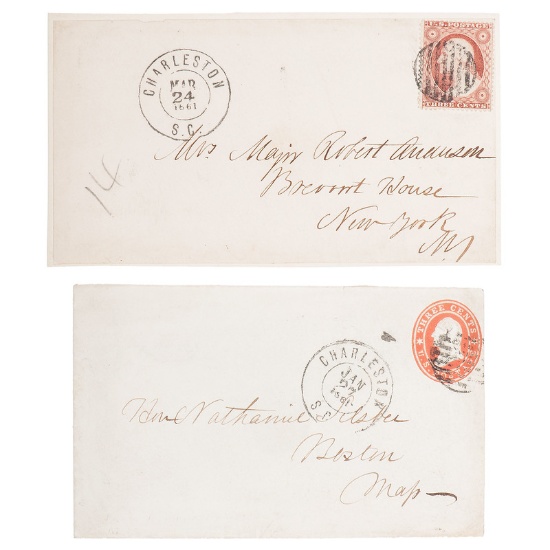 CHARLESTON
MAR
24
1861
S.C.
U.S. POSTAGE
THREE CENTS
Mrs Major Robert Anderson
Brevoort House
New York
N.Y
14
THREE CENTS
U.S.
CHARLESTON
JAN
27
1861
S.C.
Hon Nathaniel Silsbee
Boston
Mass